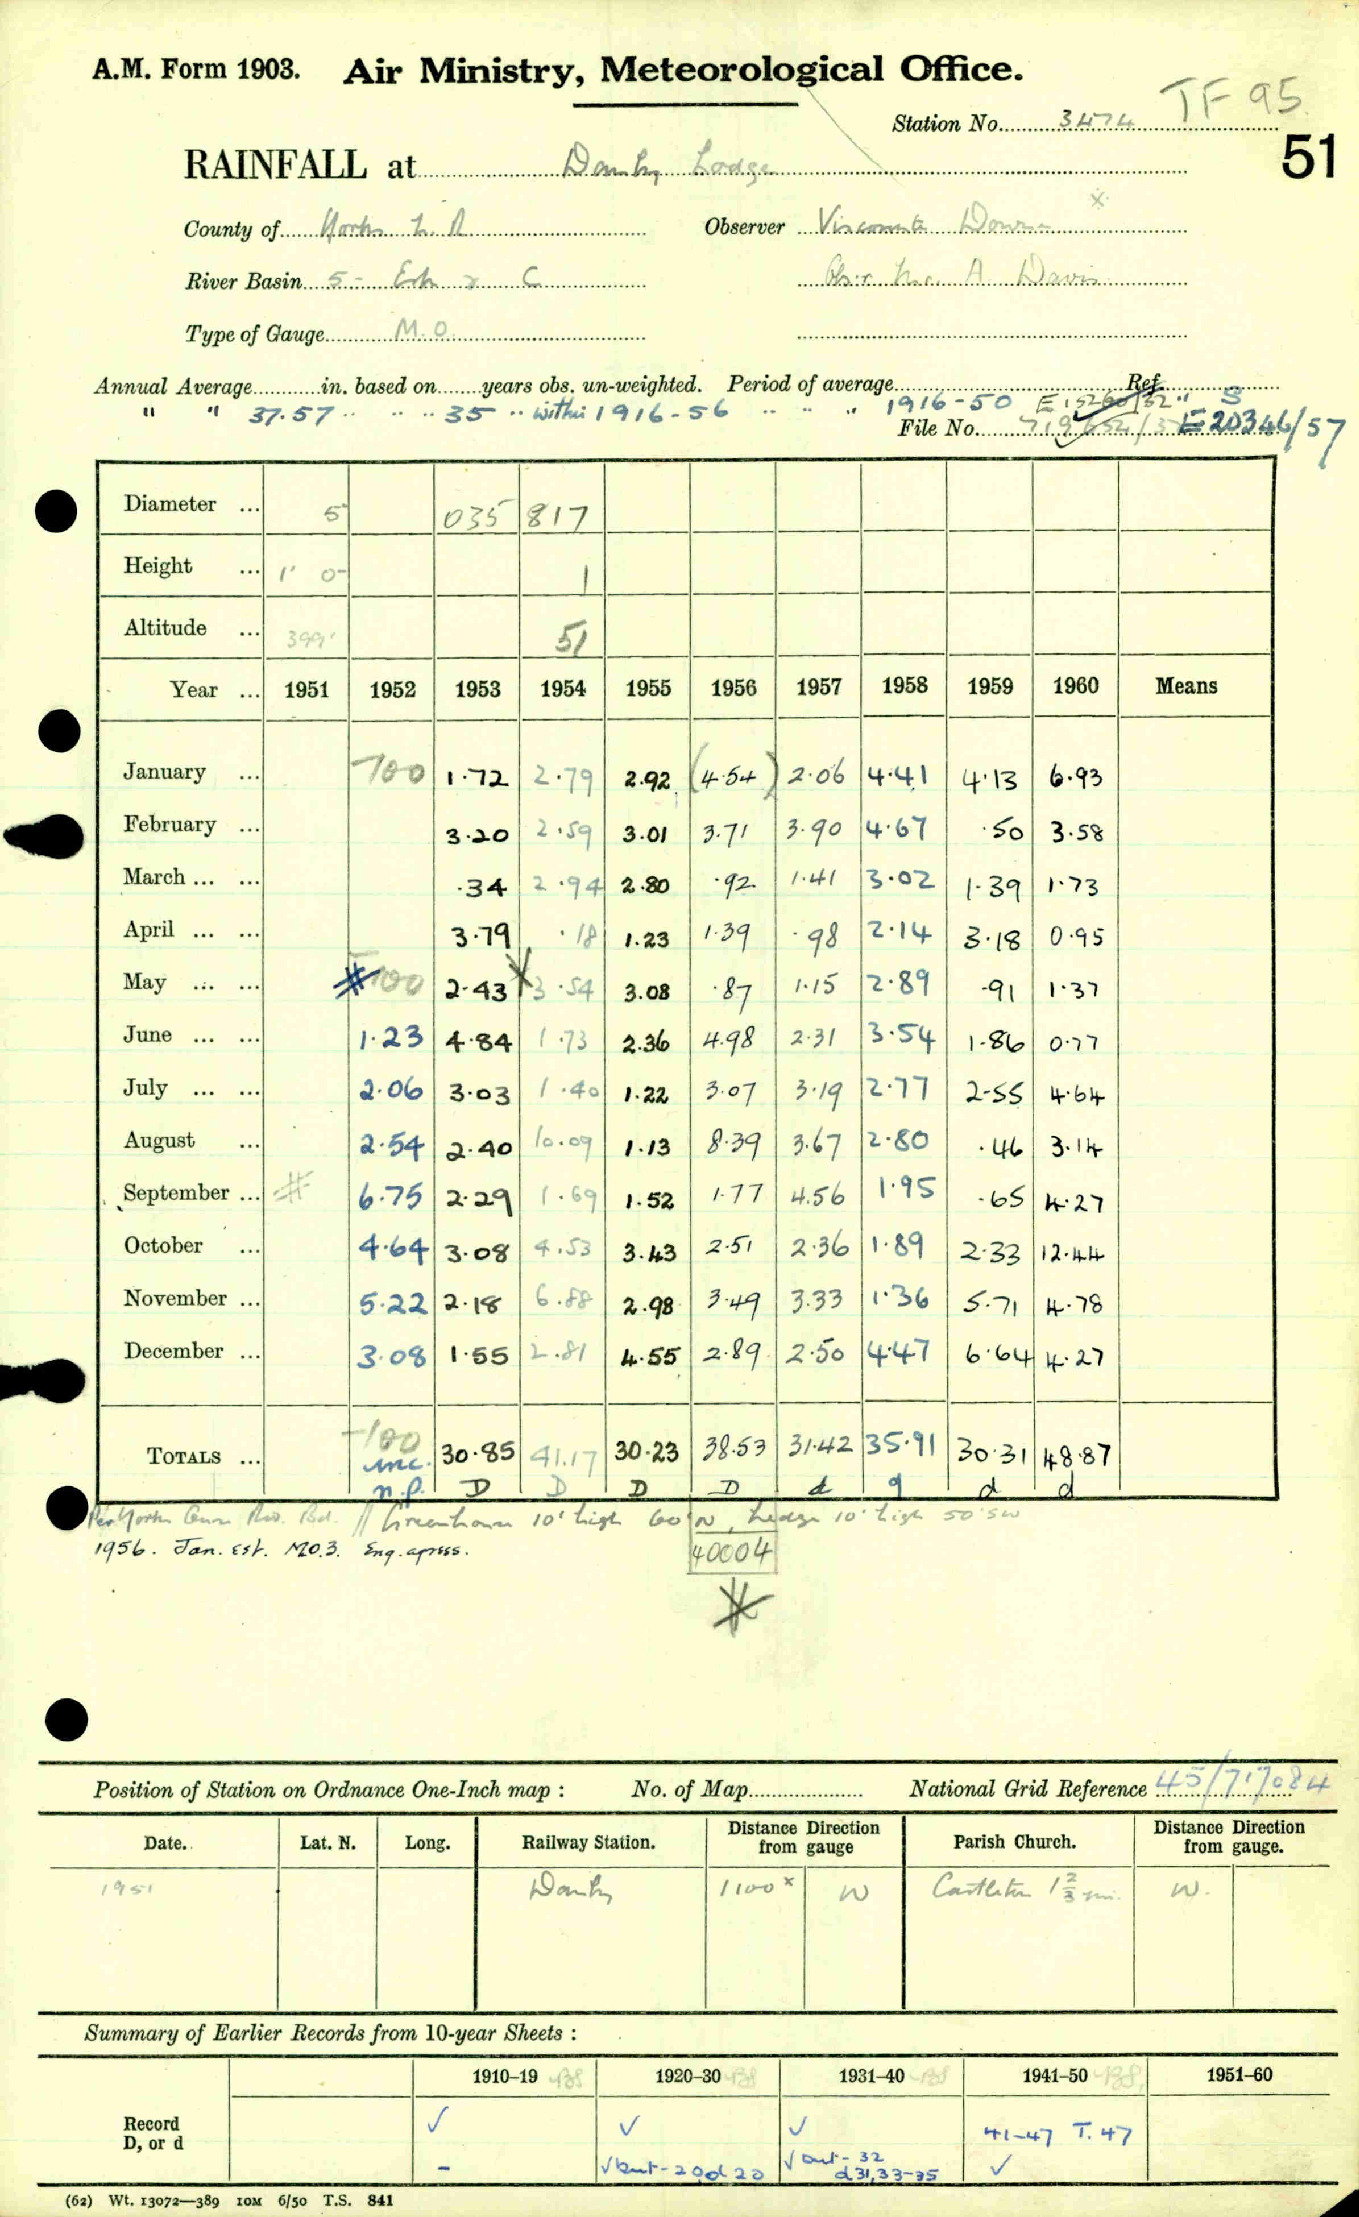 A.M. Form 1903. Air Ministry, Meteorological Office.
TF 95
Station No. 3474
51
RAINFALL at Danby Lodge
County of Yorks N. R Observer Viscount Downe x
River Basin 5 - Esk & C Obsr. Mr. A Davis
Type of Gauge M.O.
Annual Average in. based on years obs. un-weighted. Period of average Ref.
" " 37.57 " " " 35 " within 1916-56 " " " 1916-50 " S
File No. E 20346/57
Diameter ... 5 035 817
Height ... 1' 0" 1
Altitude ... 399' 51
Year ... 1951 1952 1953 1954 1955 1956 1957 1958 1959 1960 Means
January ... -100 1.72 2.79 2.92 (4.54) 2.06 4.41 4.13 6.93
February ... 3.20 2.59 3.01 3.71 3.90 4.67 .50 3.58
March ... ... .34 2.94 2.80 .92 1.41 3.02 1.39 1.73
April ... ... 3.79 .18 1.23 1.39 .98 2.14 3.18 0.95
May ... ... -100 2.43 3.54 3.08 .87 1.15 2.89 .91 1.37
June ... ... 1.23 4.84 1.73 2.36 4.98 2.31 3.54 1.86 0.77
July ... ... 2.06 3.03 1.40 1.22 3.07 3.19 2.77 2.55 4.64
August ... 2.54 2.40 10.09 1.13 8.39 3.67 2.80 .46 3.14
September ... 6.75 2.29 1.69 1.52 1.77 4.56 1.95 .65 4.27
October ... 4.64 3.08 4.53 3.43 2.51 2.36 1.89 2.33 12.44
November ... 5.22 2.18 6.88 2.98 3.49 3.33 1.36 5.71 4.78
December ... 3.08 1.55 2.81 4.55 2.89 2.50 4.47 6.64 4.27
TOTALS ... -100 inc. 30.85 41.17 30.23 38.53 31.42 35.91 30.31 48.87
n.p. D D D D d g d d
Per Yorks Ouse Riv. Bd. // Greenhouse 10' high 60' N, hedge 10' high 50' SW
1956. Jan. est. MO.3. Eng. apress.
40004
Position of Station on Ordnance One-Inch map : No. of Map National Grid Reference 45/717084
Date. Lat. N. Long. Railway Station. Distance from Direction gauge Parish Church. Distance from Direction gauge.
1951 Danby 1100 x W Castleton 1 2/3 mi. W.
Summary of Earlier Records from 10-year Sheets :
1910–19 1920–30 1931–40 1941–50 1951–60
Record ✓ ✓ ✓ 41-47 T. 47
D, or d - ✓ but - 20, d 20 ✓ but - 32 d 31, 33-35 ✓
(62) Wt. 13072—389 10M 6/50 T.S. 841